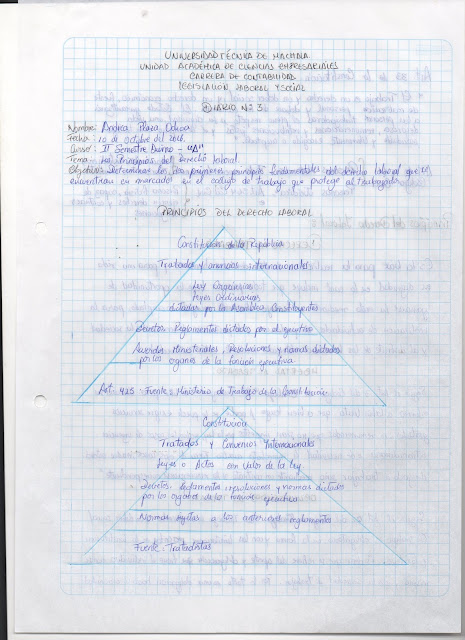 UNIVERSIDAD TÉCNICA DE MACHALA
UNIDAD ACADÉMICA DE CIENCIAS EMPRESARIALES
CARRERA DE CONTABILIDAD
LEGISLACIÓN LABORAL Y SOCIAL
DIARIO N° 3
Nombre: Andrea
Fecha: 10 de Octubre del 2016
Curso: II Semestre Diurno - "A"
Tema: Principios del Derecho laboral
Objetivo: Determinar los dos primeros principios fundamentales del derecho laboral que
encuentran en marcados en el código de trabajo que protege al trabajador
PRINCIPIOS DEL DERECHO LABORAL
Constitución de la República
Tratados y convenios internacionales
Leyes Ordinarias
dictadas por la Asamblea Constituyentes
Decretos, Reglamentos dictados por el ejecutivo
Acuerdos Ministeriales, Resoluciones y normas dictados
por los órganos de la función ejecutiva
Art. 425 - Fuente: Ministerio de Trabajo de la Constitución
Constitución
Tratados y Convenios Internacionales
Leyes o Actos con Valor de la ley
Decretos, reglamentos, resoluciones y normas dictados
por los órganos de la función ejecutiva
Normas sujetas a los anteriores reglamentos
Fuente: Tratadistas